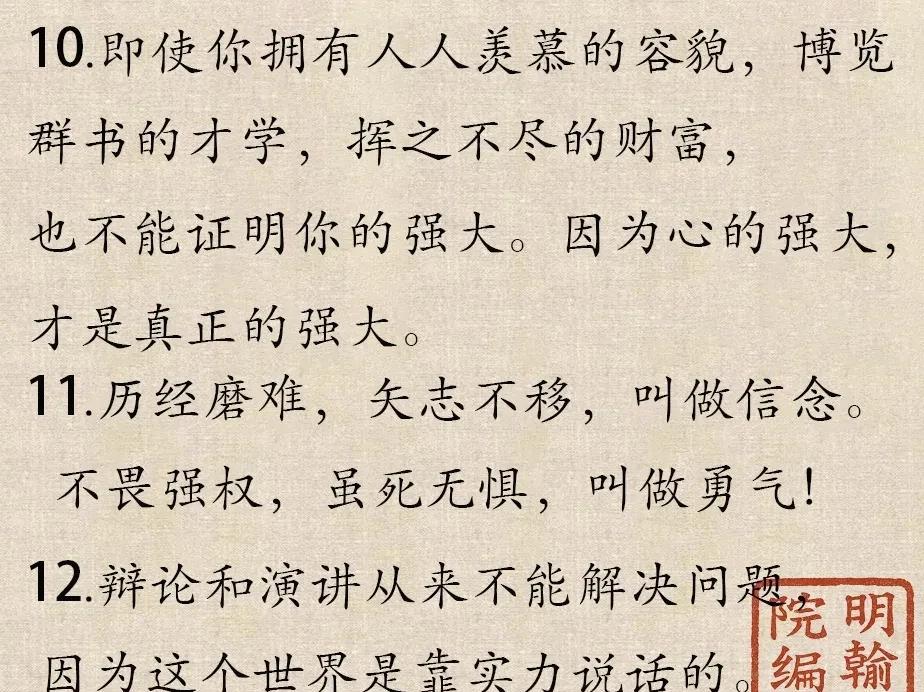 10.即使你拥有人人羡慕的容貌，博览
群书的才学，挥之不尽的财富，
也不能证明你的强大。因为心的强大，
才是真正的强大。
11.历经磨难，矢志不移，叫做信念。
不畏强权，虽死无惧，叫做勇气！
12.辩论和演讲从来不能解决问题，
因为这个世界是靠实力说话的。
明翰
院编